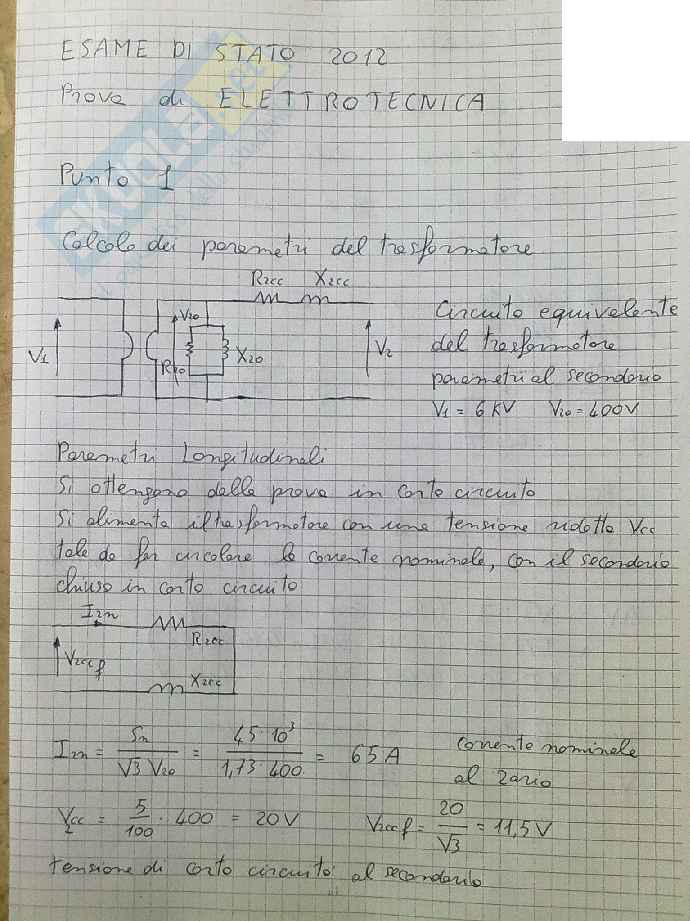 ESAME DI STATO 2012
Prova di ELETTROTECNICA
Punto 1
Calcolo dei parametri del trasformatore
R2cc X2cc
V1
V20
R10
X20
V2
Circuito equivalente
del trasformatore
parametri al secondario
V1 = 6 KV V20 = 400V
Parametri Longitudinali
Si ottengono dalla prova in corto circuito
Si alimenta il trasformatore con una tensione ridotta Vcc
tale da far circolare la corrente nominale, con il secondario
chiuso in corto circuito
I2n
R2cc
V2ccf
X2cc
I2n = Sn / √3 V20 = 45·10³ / 1,73·400 = 65 A corrente nominale
al 2ario
Vcc2 = 5/100 · 400 = 20V V2ccf = 20/√3 = 11,5 V
tensione di corto circuito al secondario